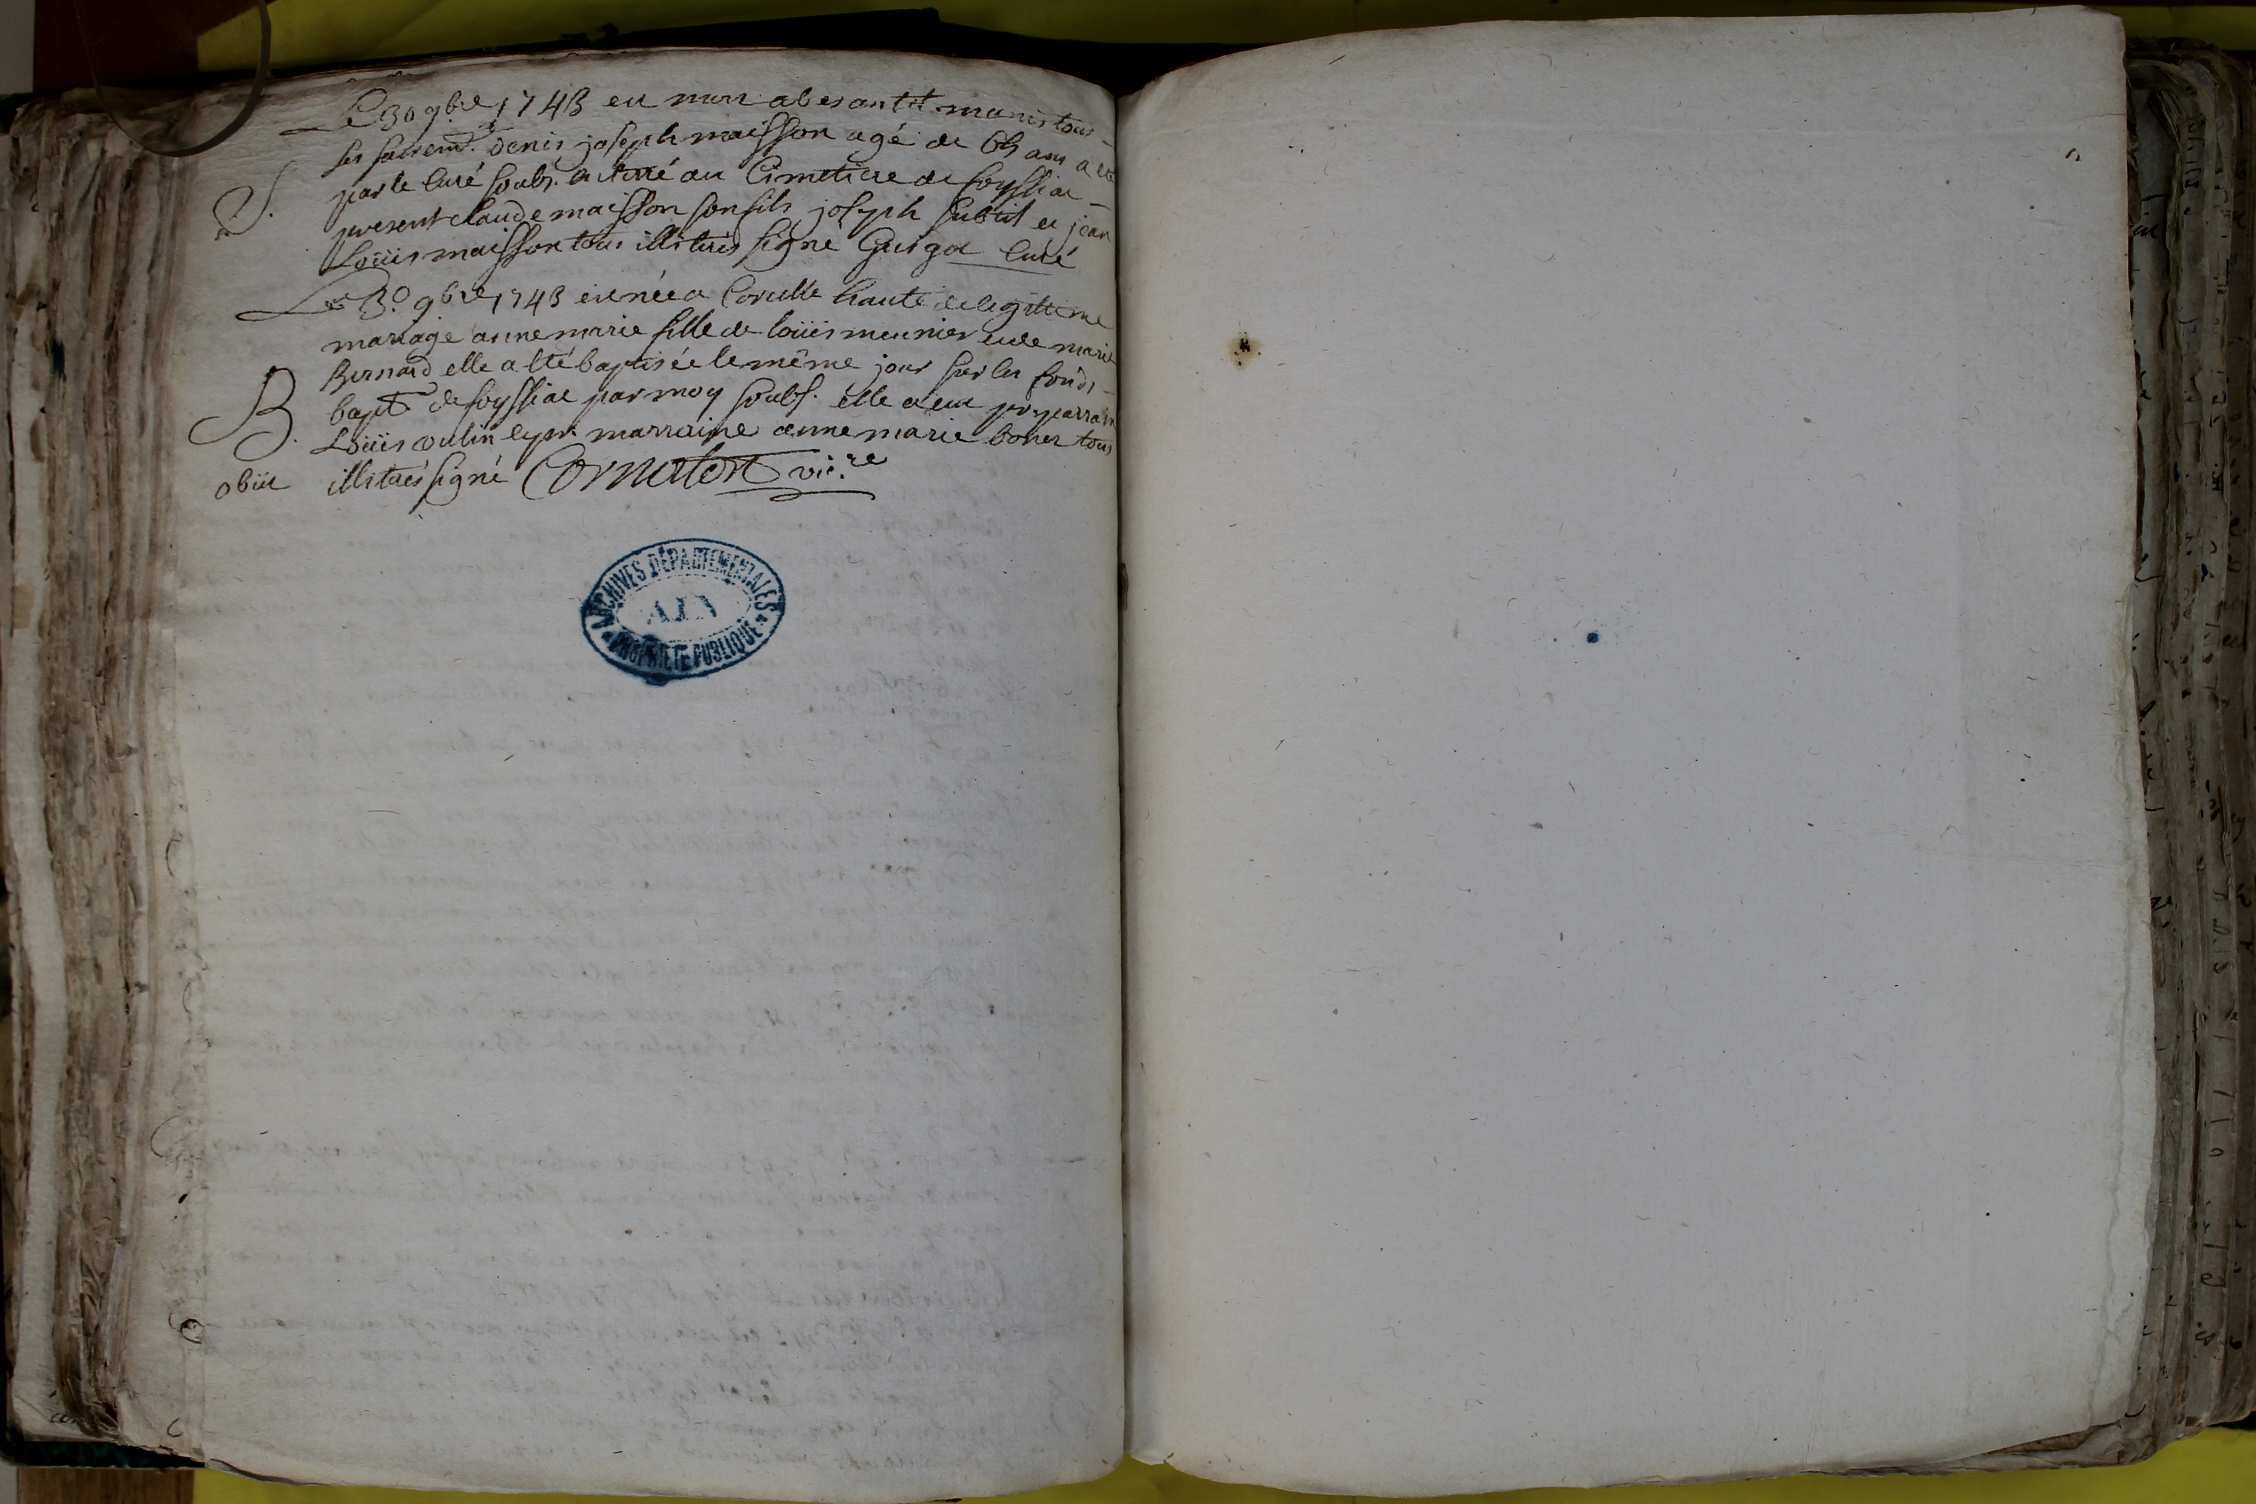 Le 30 9bre 1743 est mort a besantet munis tous
ses sacremt. denis joseph maisson agé de 65 ans a eté
S. par le curé soubs. enterré au Cimetiere de foyssiac
present claude maisson son fils joseph subtil et jean
Loüis maisson tous illiterés signé Guigot curé
Le 30 9bre 1743 est née a Corcelle haute de legittime
mariage anne marie fille de loüis meunier et de marie
Bernard elle a eté baptisée le même jour sur les fonds
B. bapt. de foyssiac par moy soubs. elle a eu pr parrain
Loüis et pr. marraine anne marie tous
obiit illiterés signé Cornaton vic.re
ARCHIVES DÉPARTEMENTALES
AIN
PROPRIETE PUBLIQUE